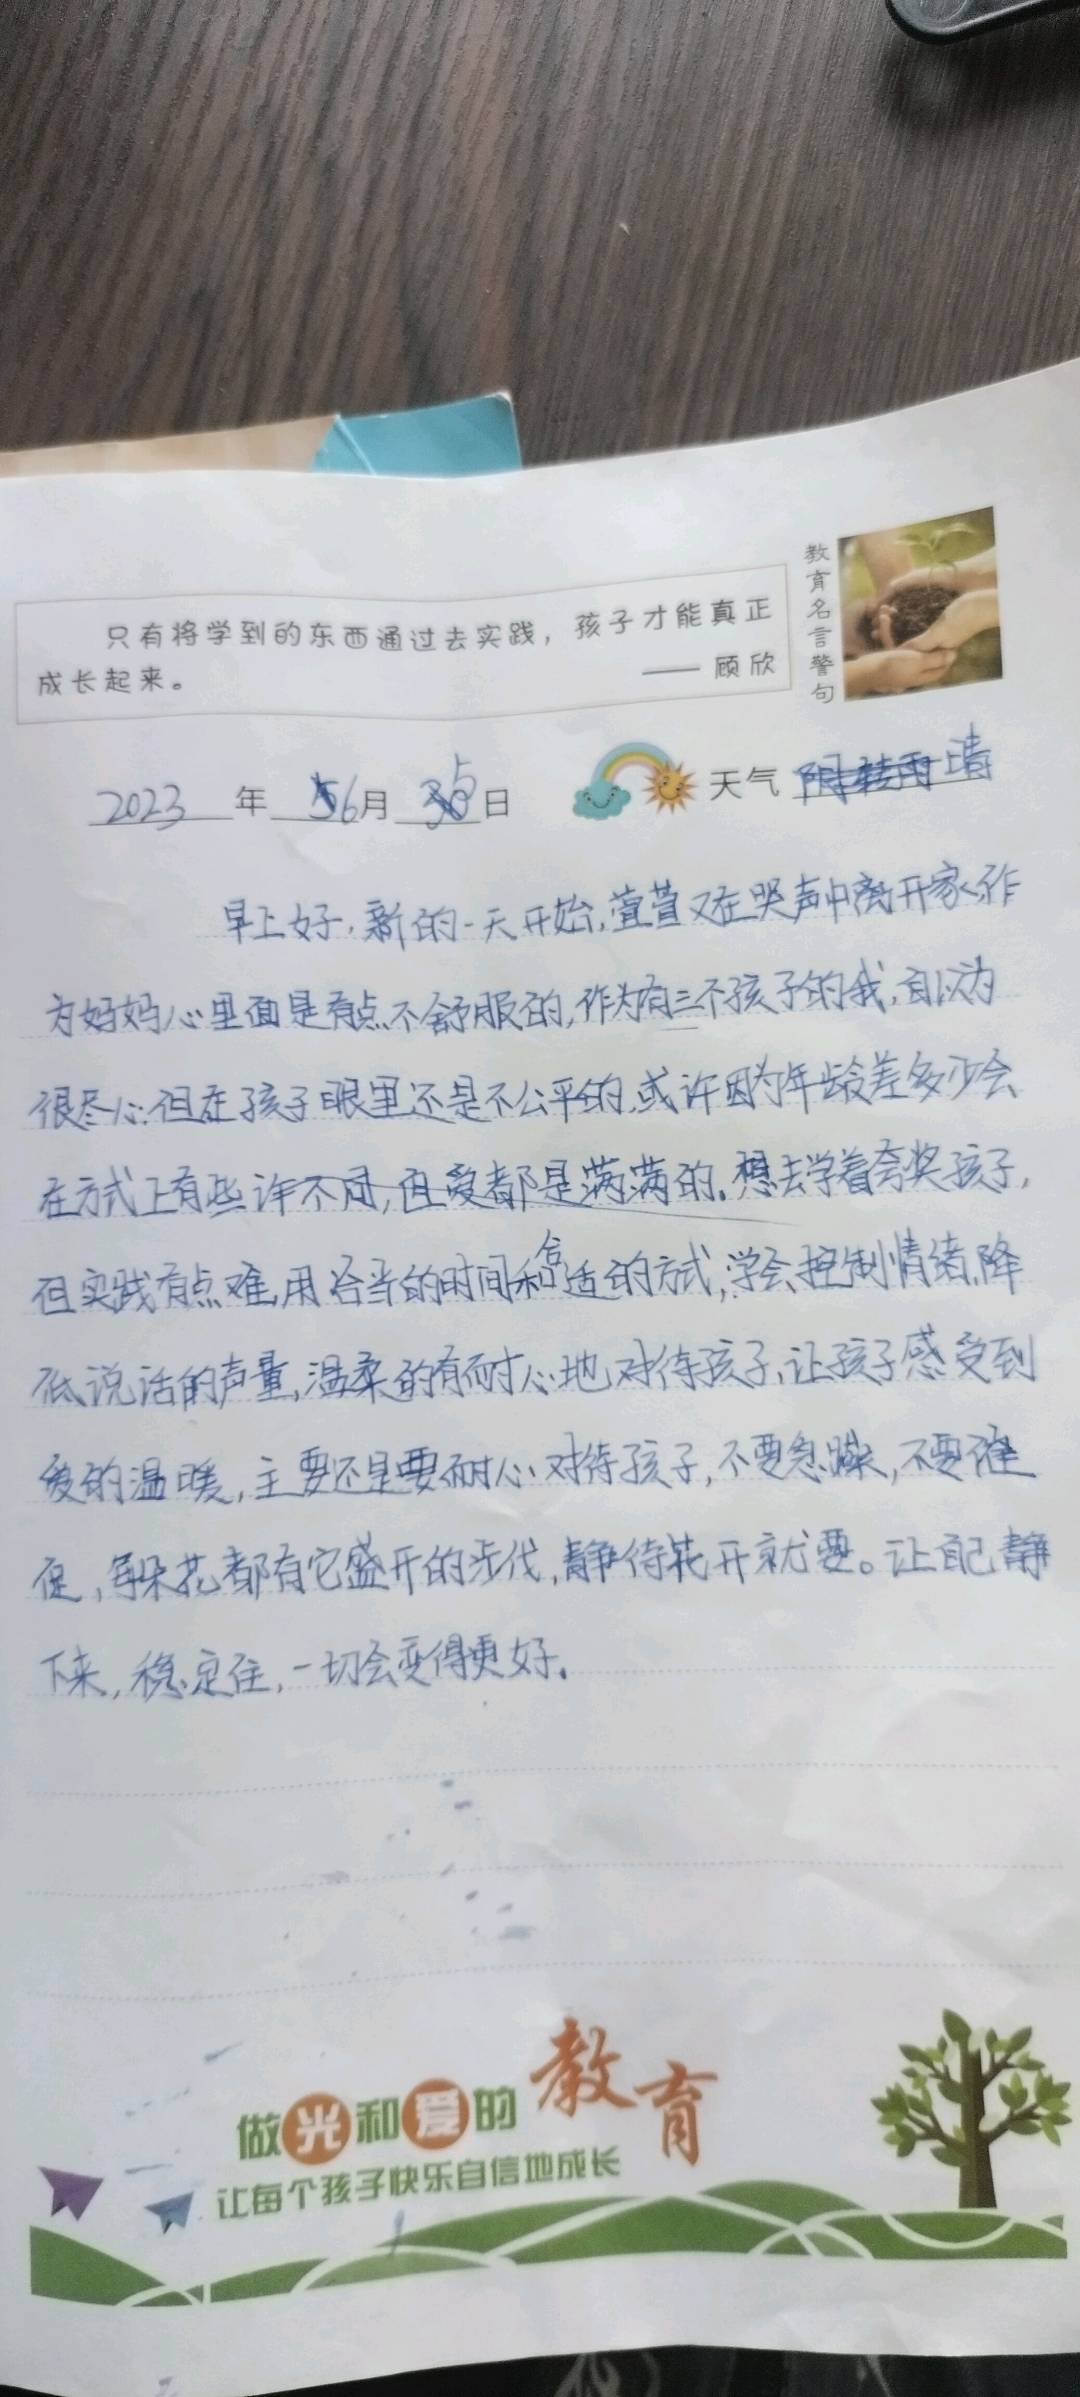 教育名言警句
只有将学到的东西通过去实践，孩子才能真正
成长起来。
—— 顾欣
2023年 6月 5日 天气 阴转雨 晴
早上好，新的一天开始，萱萱又在哭声中离开家，作
为妈妈心里面是有点不舒服的，作为有三个孩子的我，自认为
很尽心，但在孩子眼里还是不公平的，或许因为年龄差多少会
在方式上有些许不同，但爱都是满满的。想去学着夸奖孩子，
但实践有点难，用合当的时间和合适的方式，学会控制情绪，降
低说话的声量，温柔的有耐心地对待孩子，让孩子感受到
爱的温暖，主要还是要耐心对待孩子，不要急躁，不要催
促，每朵花都有它盛开的步伐，静待花开就要。让自己静
下来，稳定住，一切会变得更好。
做光和爱的教育
让每个孩子快乐自信地成长